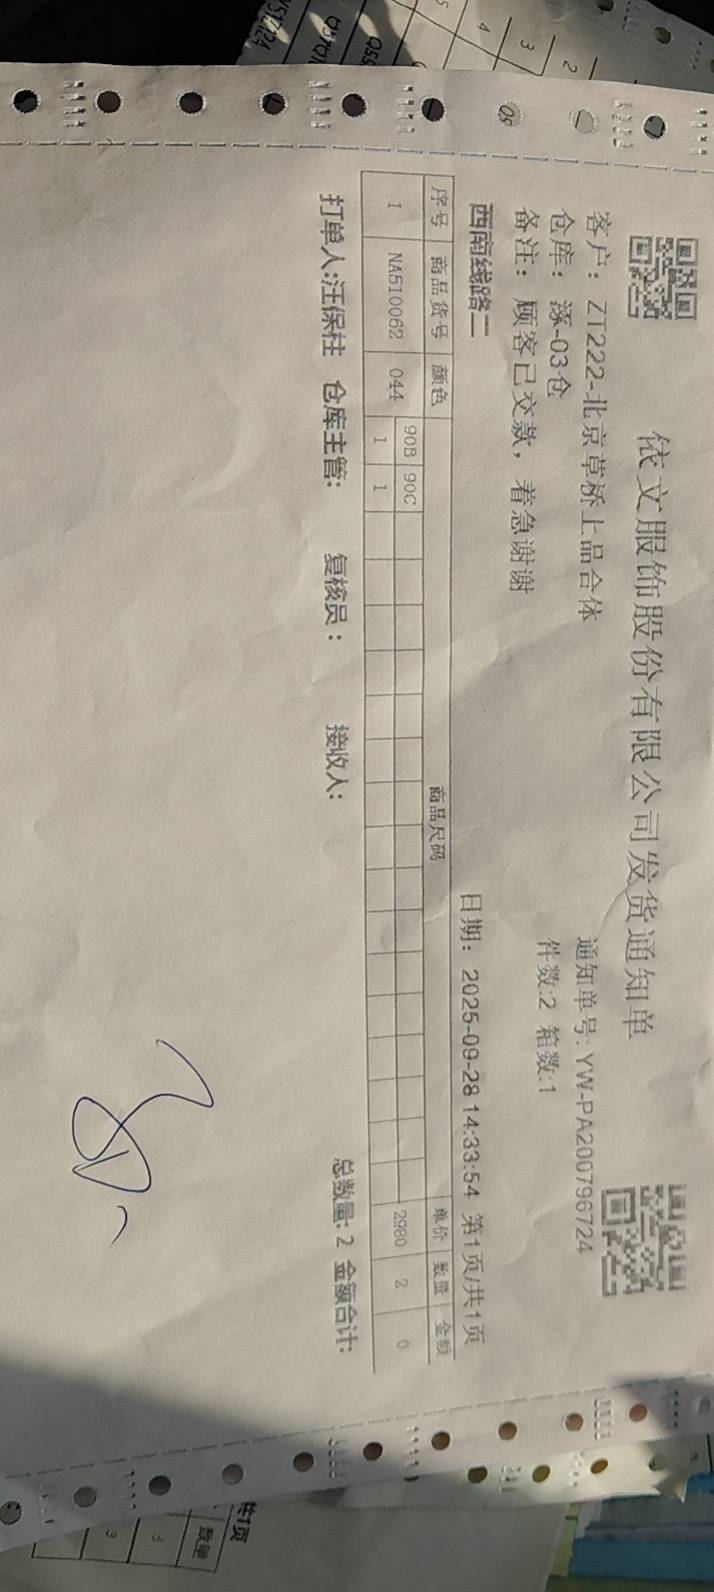 依文服饰股份有限公司发货通知单
客户：ZT222-北京草桥上品合体 通知单号:YW-PA200796724
仓库：涿-03仓 件数:2 箱数:1
备注：顾客已交款，着急谢谢
西南线路二 日期：2025-09-28 14:33:54 第1页/共1页
序号 商品货号 颜色 商品尺码 单价 数量 金额
90B 90C
1 NA510062 044 1 1 2980 2 0
打单人:汪保柱 仓库主管: 复核员： 接收人: 总数量:2 金额合计:
共1页
数量
3
3
2
3
4
5